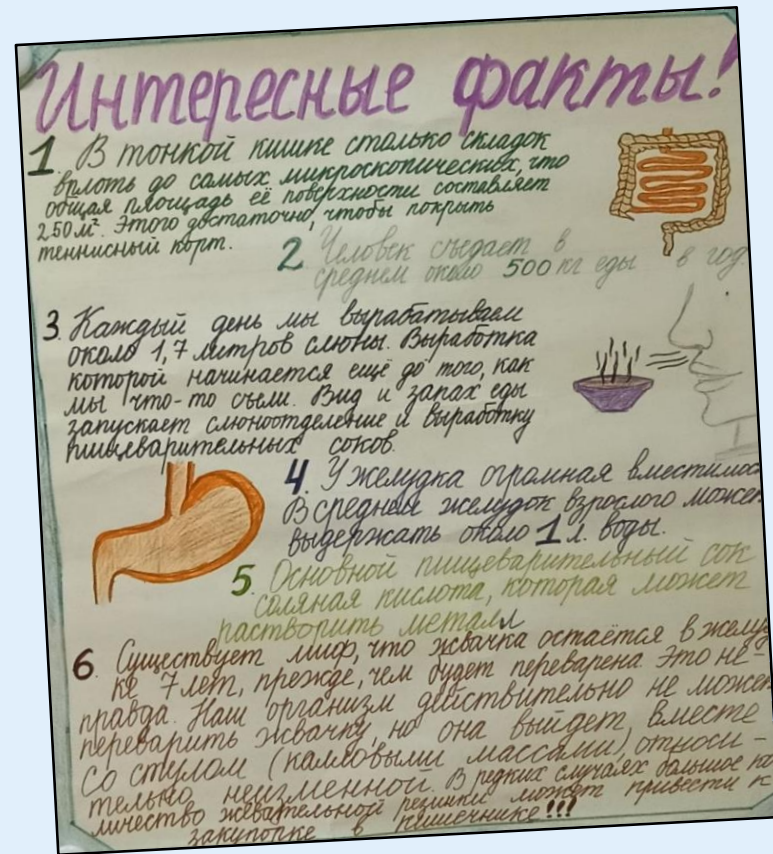 Интересные факты!
1. В тонкой кишке столько складок
вплоть до самых микроскопических, что
общая площадь её поверхности составляет
250 м². Этого достаточно, чтобы покрыть
теннисный корт.
2 Человек съедает в
среднем около 500 кг еды в год
3. Каждый день мы вырабатываем
около 1,7 литров слюны. Выработка
которой начинается ещё до того, как
мы что-то съели. Вид и запах еды
запускает слюноотделение и выработку
пищеварительных соков.
4. У желудка огромная вместимос
В среднем желудок взрослого может
выдержать около 1 л. воды.
5 Основной пищеварительный сок
соляная кислота, которая может
растворить металл
6. Существует миф, что жвачка остаётся в желуд
ке 7 лет, прежде, чем будет переварена Это не-
правда. Наш организм действительно не может
переварить жвачку, но она выйдет вместе
со стулом (калловыми массами), относи-
тельно неизменной. В редких случаях большое ко
личество жевательной резинки может привести к
закупорке в кишечнике!!!